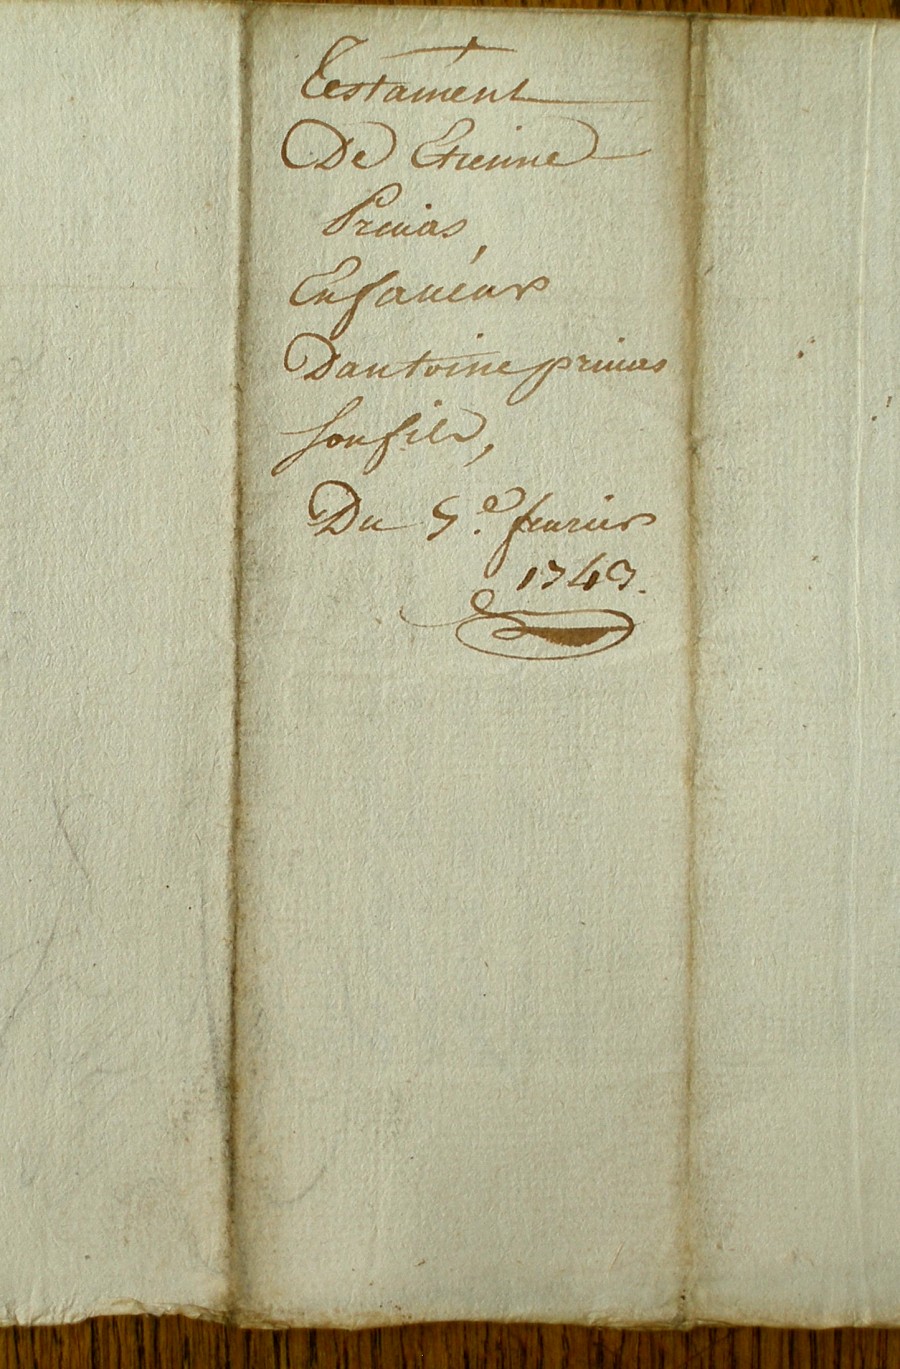 Testament
De Etienne
Privas,
En faveur
Dantoine privas
son fils,
Du 5.e fevrier
1749.